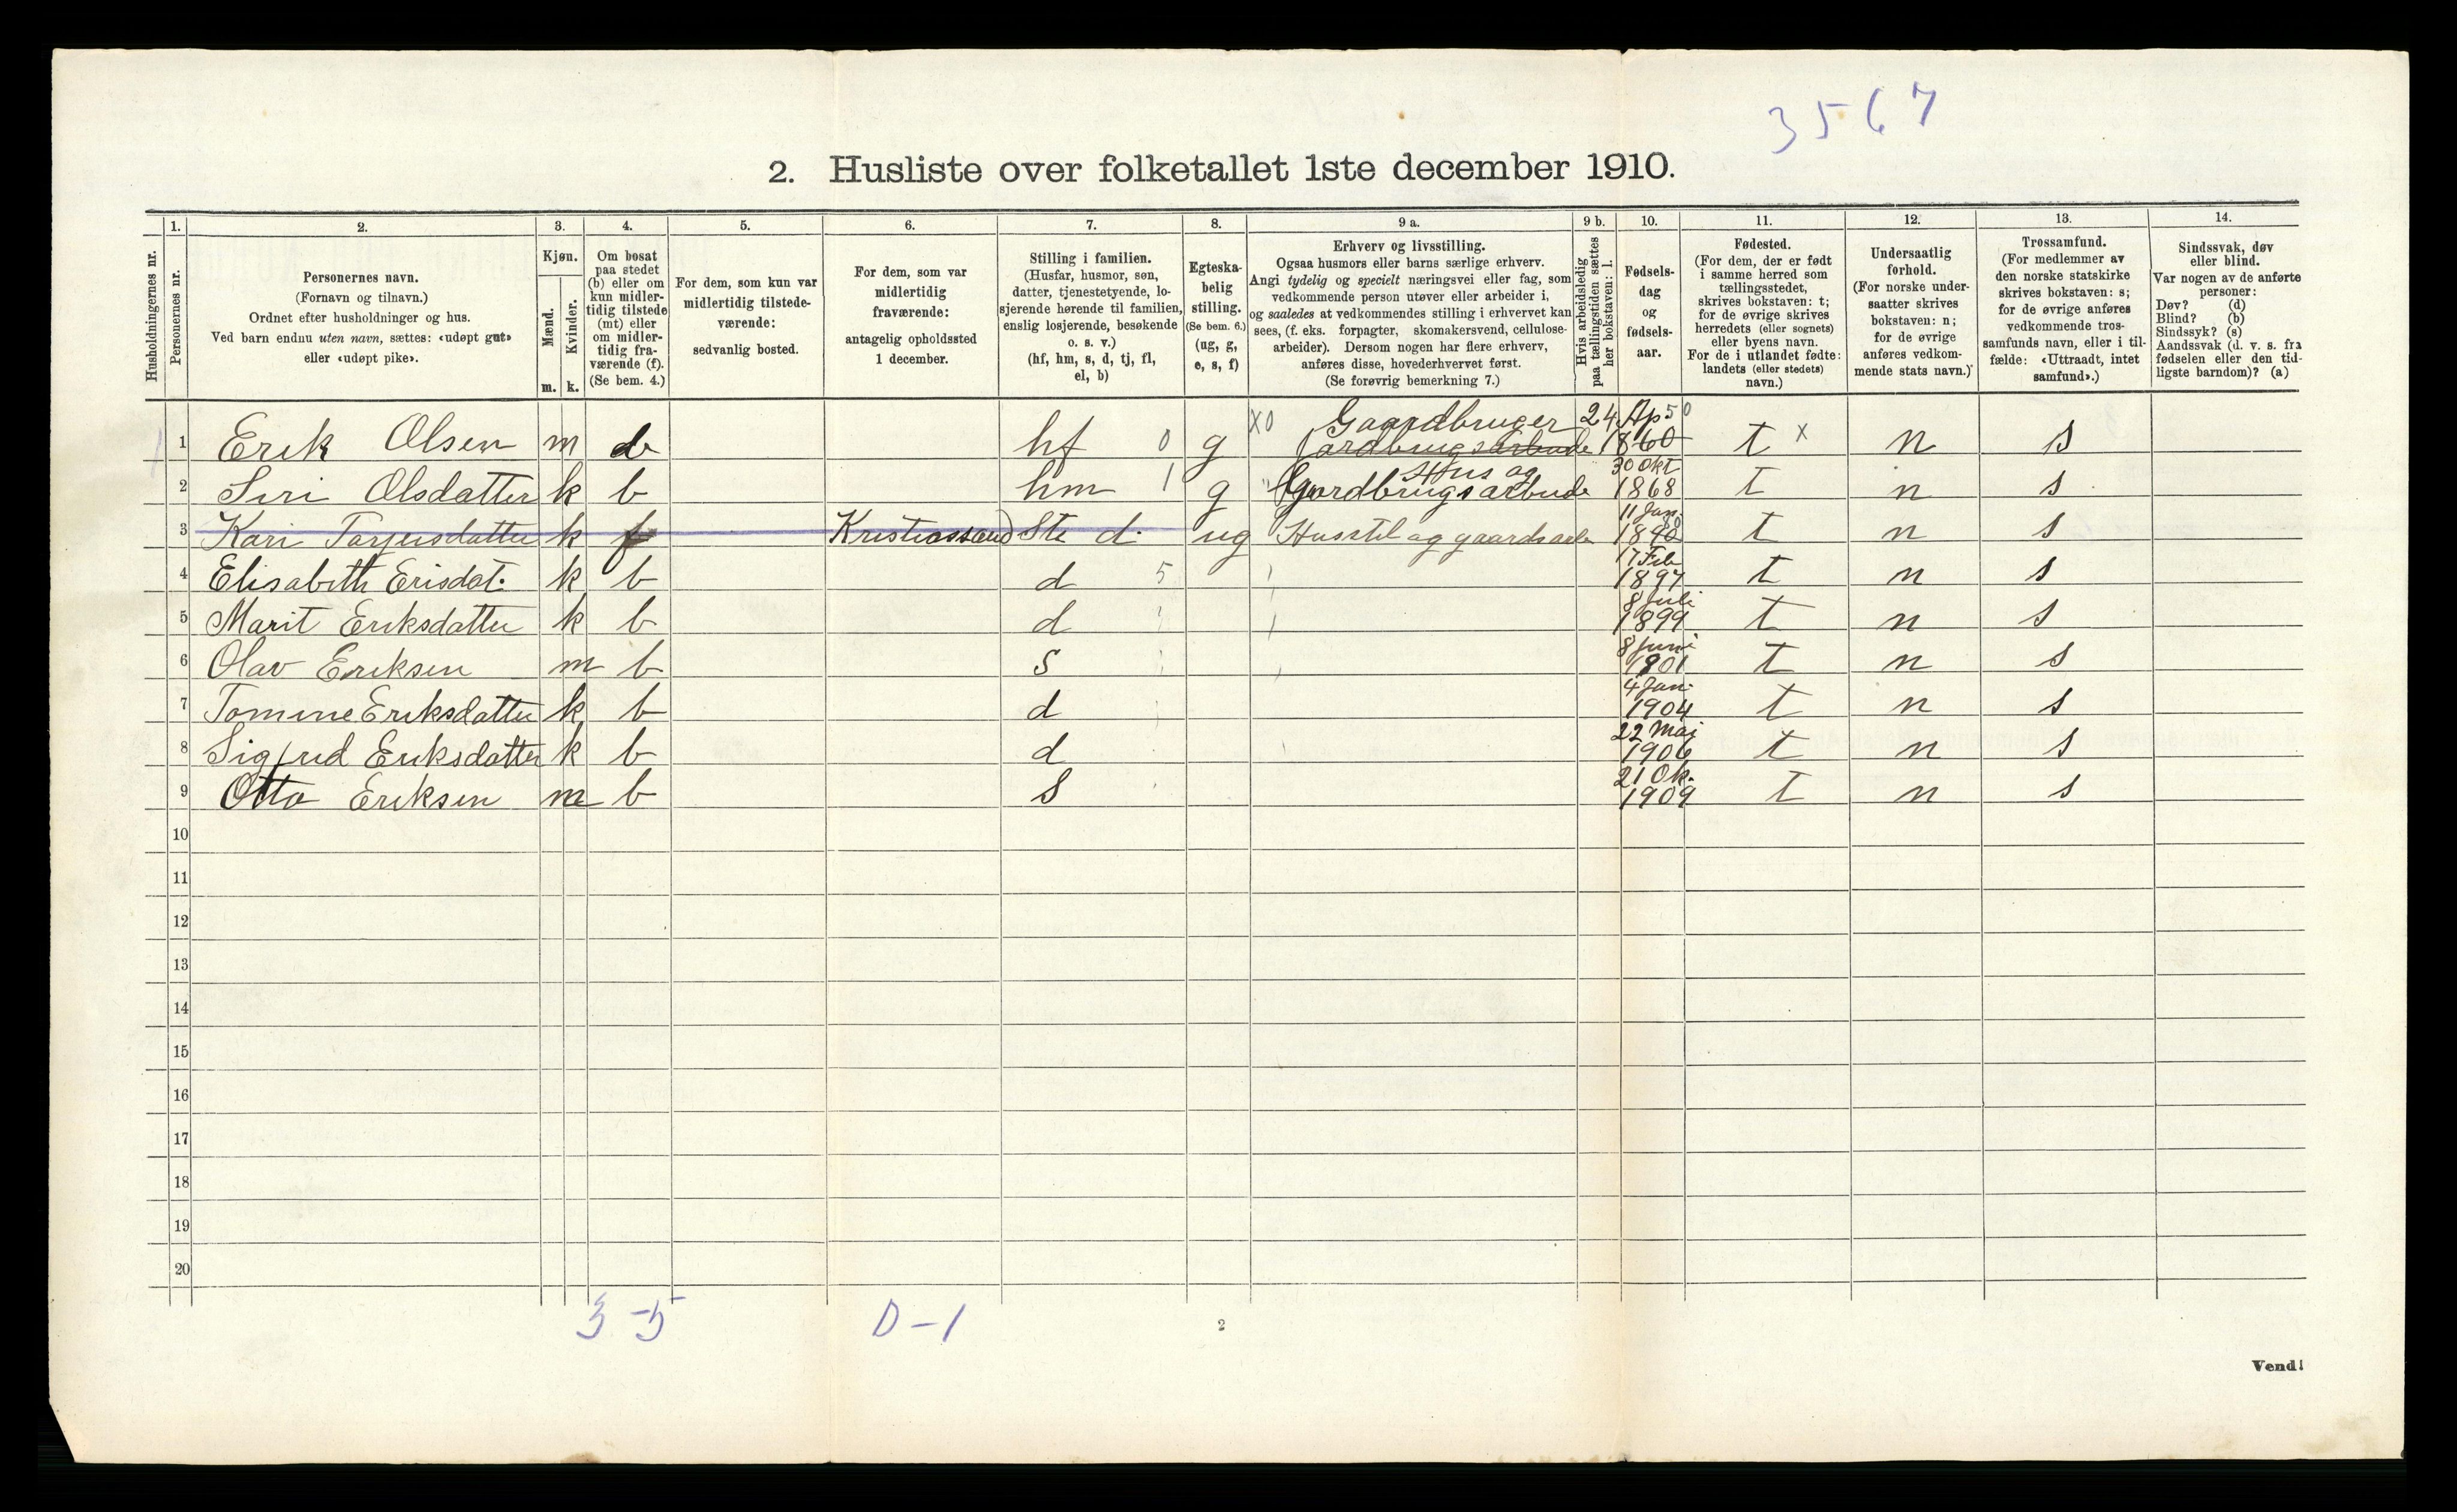 3567
2. Husliste over folketallet 1ste december 1910.
Husholdningernes nr.
1.
Personernes nr.
2.
Personernes navn.
(Fornavn og tilnavn.)
Ordnet efter husholdninger og hus.
Ved barn endnu uten navn, sættes: «udøpt gut»
eller «udøpt pike».
3.
Kjøn.
Mænd.
m.
Kvinder.
k.
4.
Om bosat
paa stedet
(b) eller om
kun midler-
tidig tilstede
(mt) eller
om midler-
tidig fra-
værende (f).
(Se bem. 4.)
5.
For dem, som kun var
midlertidig tilstede-
værende:
sedvanlig bosted.
6.
For dem, som var
midlertidig
fraværende:
antagelig opholdssted
1 december.
7.
Stilling i familien.
(Husfar, husmor, søn,
datter, tjenestetyende, lo-
sjerende hørende til familien,
enslig losjerende, besøkende
o. s. v.)
(hf, hm, s, d, tj, fl,
el, b)
8.
Egteska-
belig
stilling.
(Se bem. 6.)
(ug, g,
e, s, f)
9 a.
Erhverv og livsstilling.
Ogsaa husmors eller barns særlige erhverv.
Angi tydelig og specielt næringsvei eller fag, som
vedkommende person utøver eller arbeider i,
og saaledes at vedkommendes stilling i erhvervet kan
sees, (f. eks. forpagter, skomakersvend, cellulose-
arbeider). Dersom nogen har flere erhverv,
anføres disse, hovederhvervet først.
(Se forøvrig bemerkning 7.)
9 b.
Hvis arbeidsledig
paa tællingstiden sættes
her bokstaven: l.
10.
Fødsels-
dag
og
fødsels-
aar.
11.
Fødested.
(For dem, der er født
i samme herred som
tællingsstedet,
skrives bokstaven: t;
for de øvrige skrives
herredets (eller sognets)
eller byens navn.
For de i utlandet fødte:
landets (eller stedets)
navn.)
12.
Undersaatlig
forhold.
(For norske under-
saatter skrives
bokstaven: n;
for de øvrige
anføres vedkom-
mende stats navn.)
13.
Trossamfund.
(For medlemmer av
den norske statskirke
skrives bokstaven: s;
for de øvrige anføres
vedkommende tros-
samfunds navn, eller i til-
fælde: «Uttraadt, intet
samfund».)
14.
Sindssvak, døv
eller blind.
Var nogen av de anførte
personer:
Døv? (d)
Blind? (b)
Sindssyk? (s)
Aandssvak (d. v. s. fra
fødselen eller den tid-
ligste barndom)? (a)
1 Erik Olsen m b hf 0 g X0 Gaardbruger 24 Ap 50 1860 t x n s
2 Siri Olsdatter k b hm 1 g Hus og Gardbrugsarbude 30 Okt 1868 t n s
3 Kari Tarjeisdatter k f Kristiassand Ste d. ug Husstel og gaardsarb 11 Jan. 1890 t n s
4 Elisabeth Erisdat. k b d 5 17 Feb 1897 t n s
5 Marit Eriksdatter k b d 8 Juli 1899 t n s
6 Olav Eriksen m b s 8 Juni 1901 t n s
7 Tomine Eriksdatter k b d 4 Jan. 1904 t n s
8 Sigfrid Eriksdatter k b d 22 Maj 1906 t n s
9 Otto Eriksen m b s 21 Ok. 1909 t n s
10
11
12
13
14
15
16
17
18
19
20
3-5 D-1
2
Vend!